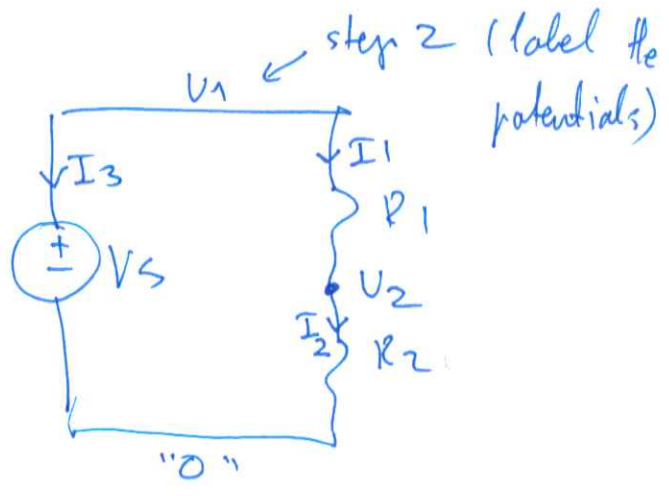 step 2 (label the
potentials)
U1
I3
I1
R1
+
-
VS
U2
I2
R2
"0"